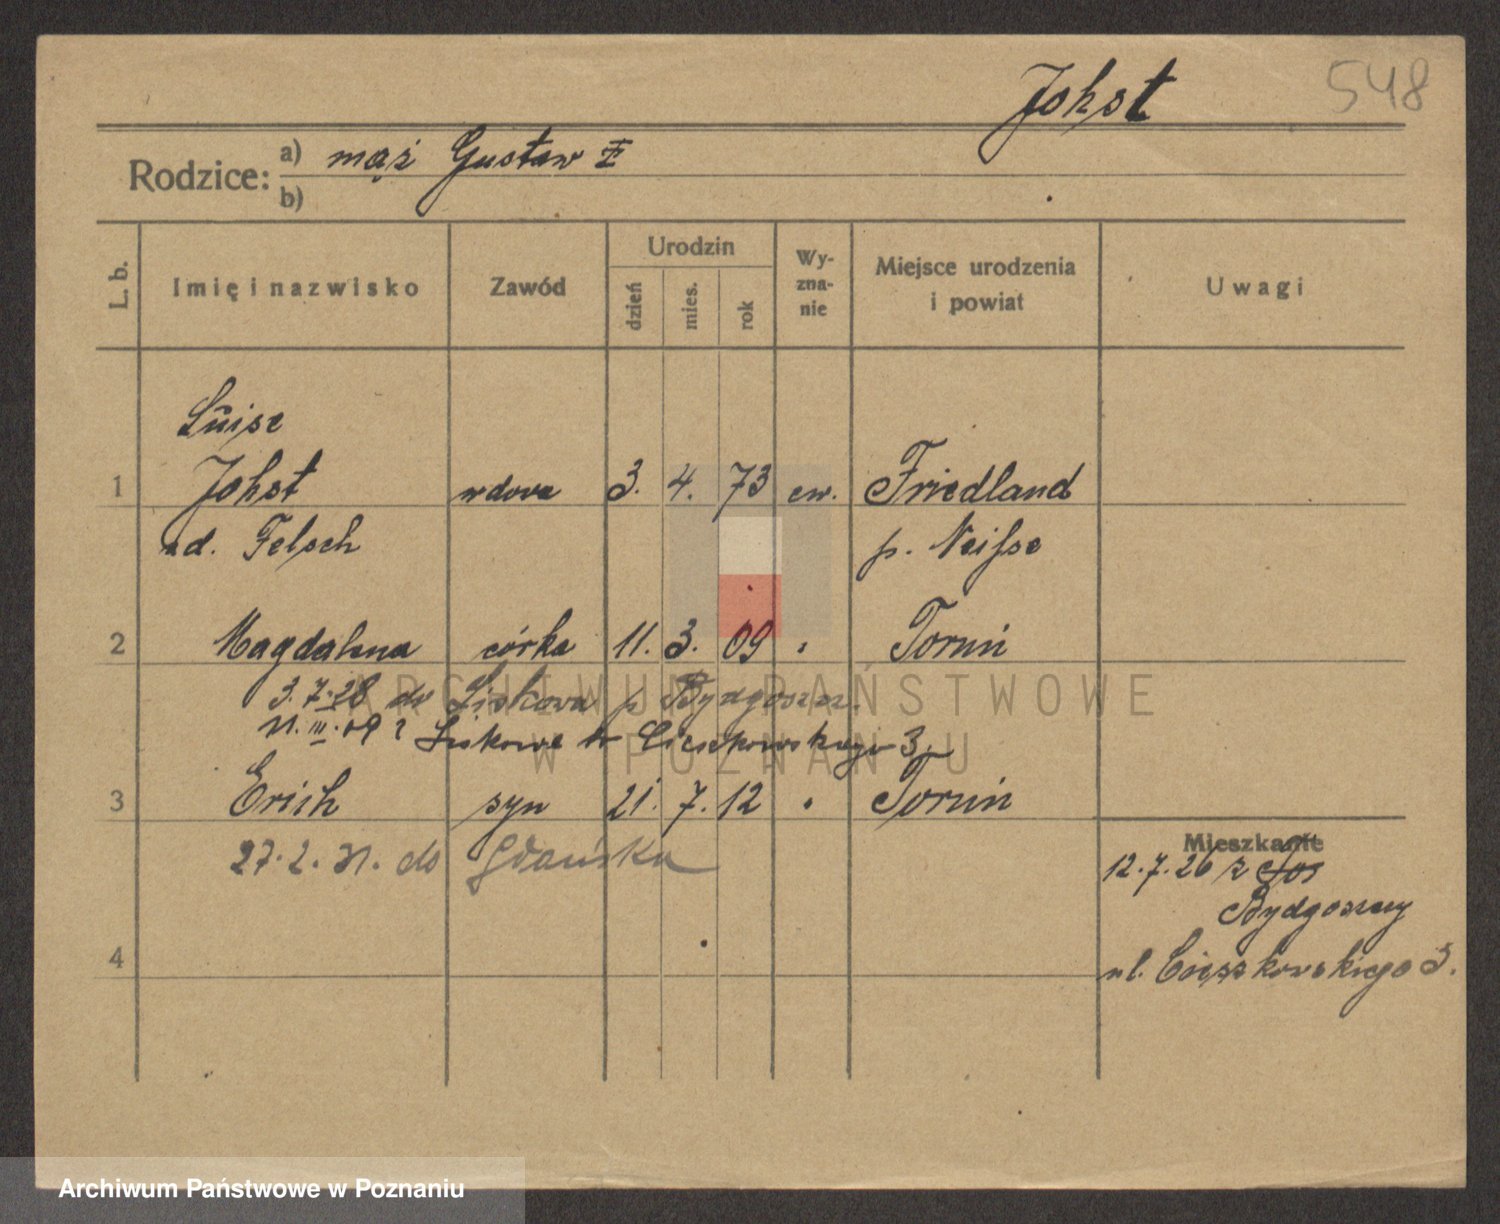 Johst
548
Rodzice: a) mąż Gustaw
b)
L. b.
Imię i nazwisko
Zawód
Urodzin
dzień
mies.
rok
Wy-
zna-
nie
Miejsce urodzenia
i powiat
Uwagi
Luise
1 Johst wdowa 3. 4. 73 ew. Friedland
d. Felsch p. Neisse
2 Magdalena córka 11. 3. 09 " Toruń
3.7.28 do Liskowa p Bydgoszcz.
11.III.09 Liskowa Cieszkowskiego 3.
3 Erich syn 21. 7. 12 " Toruń
27.2.31. do Gdańska
Mieszkanie
12.7.26 z
Bydgoszczy
4
ul. Cieszkowskiego 3.
ARCHIWUM PAŃSTWOWE
W POZNANIU
Archiwum Państwowe w Poznaniu